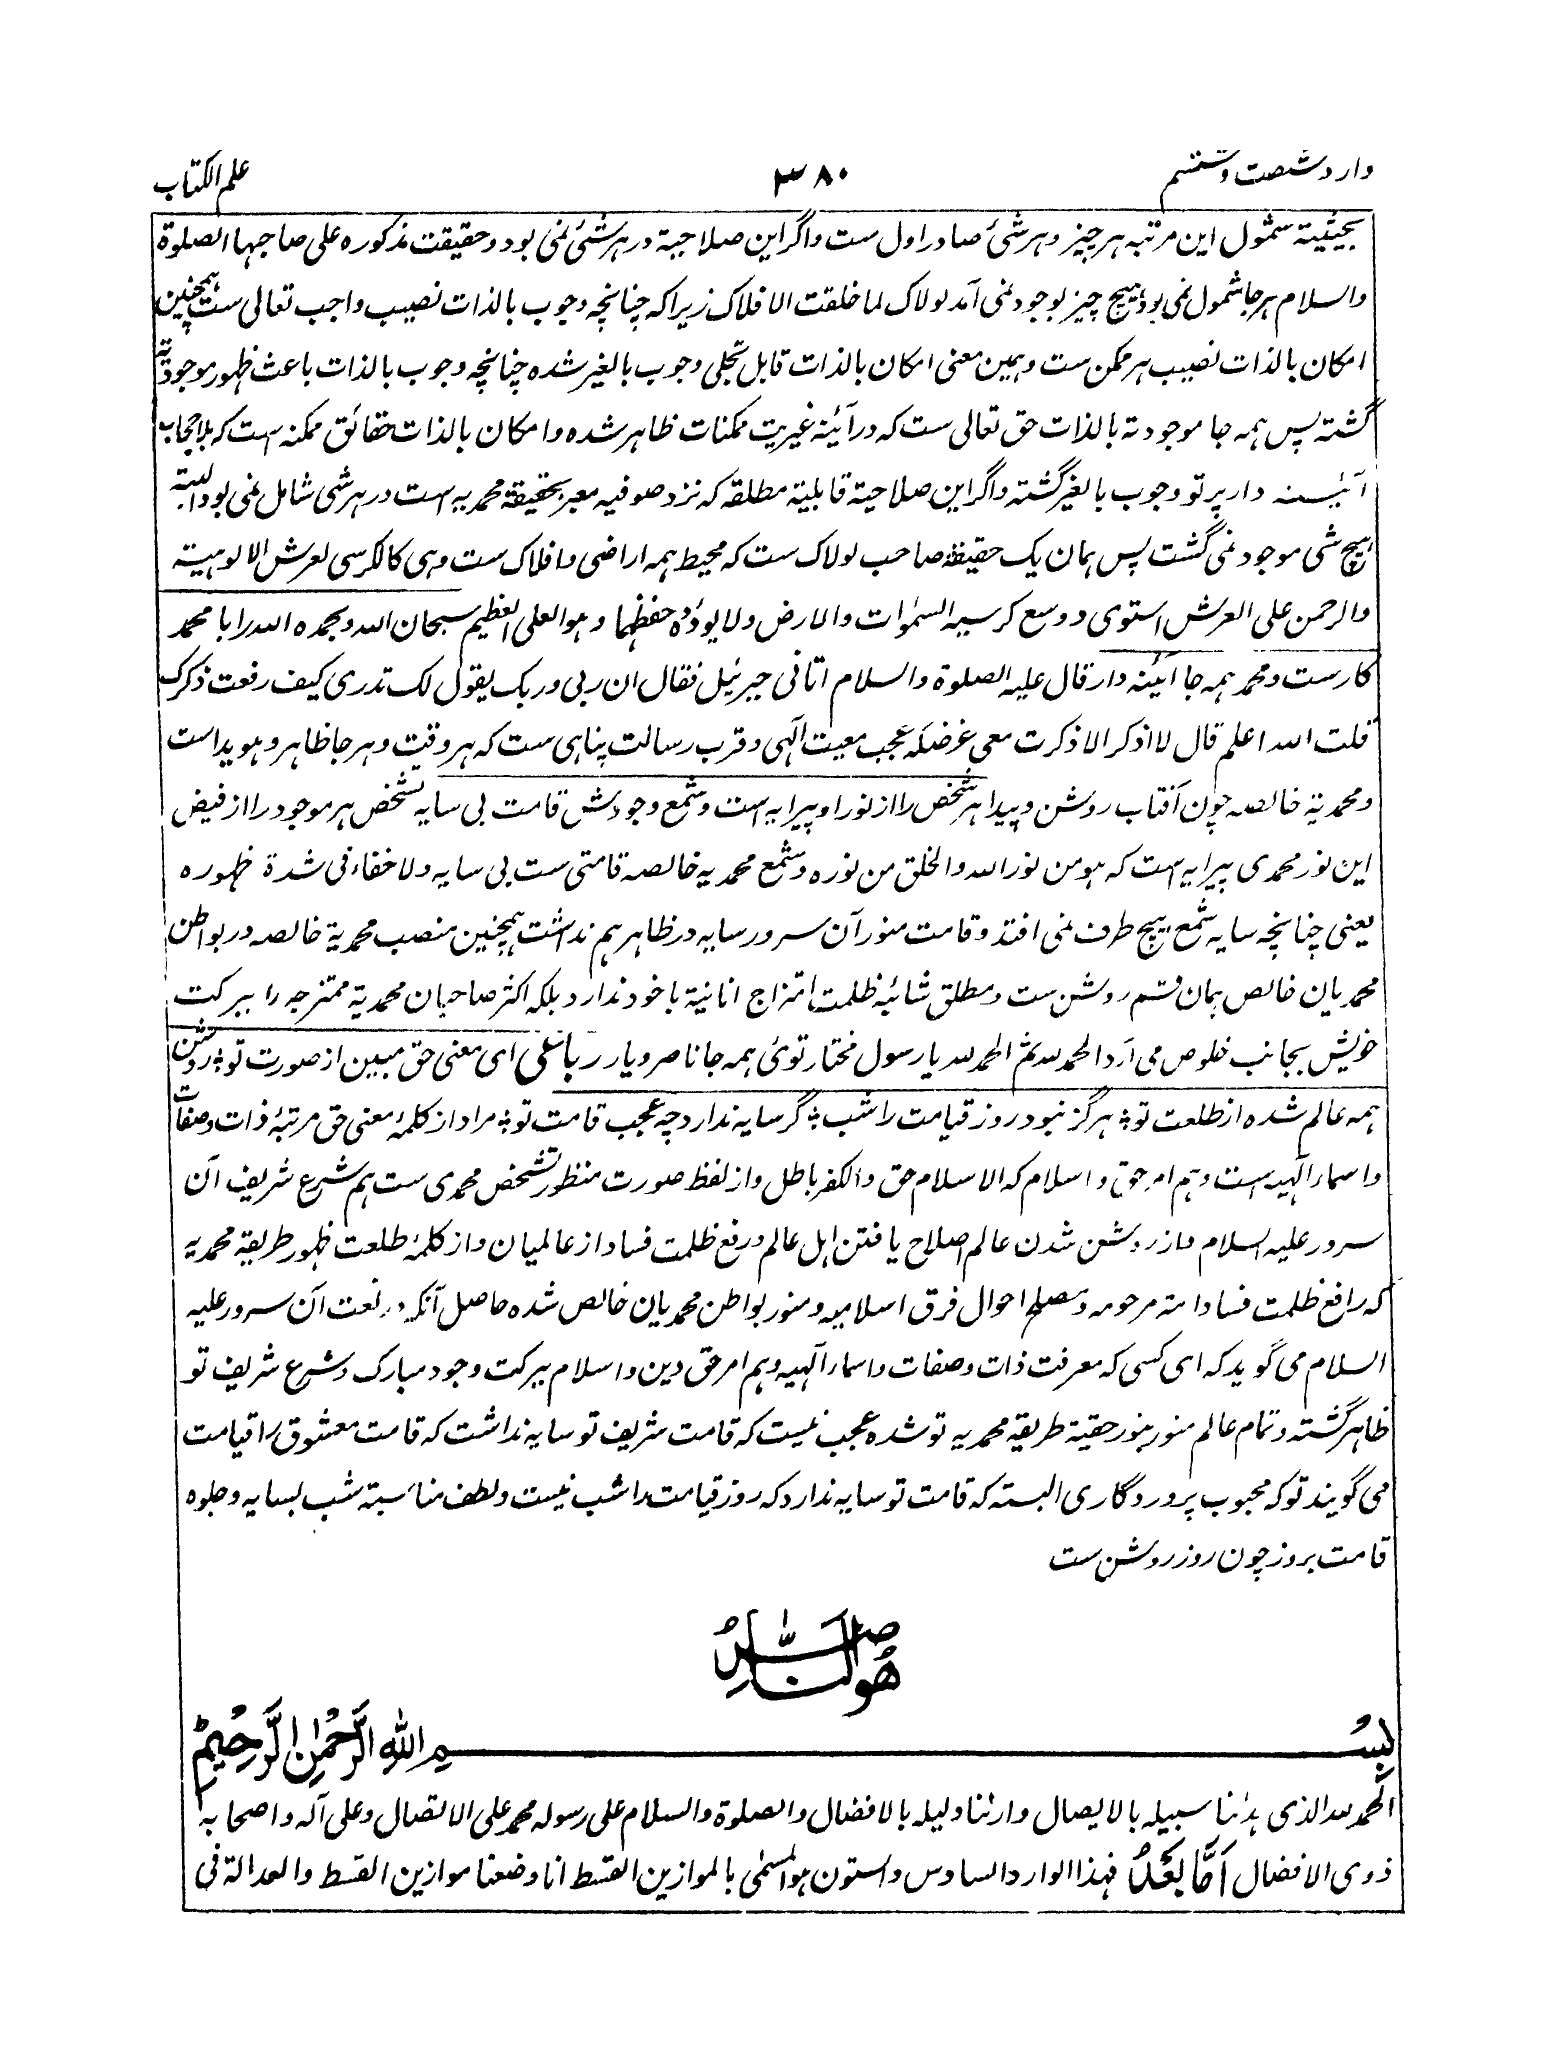 وارد شصت و ششم
۳۸۰
علم الکتاب
بحیثیة شمول این مرتبه هر چیز و هر شئ صادر اول ست و اگر این صلاحیة در هر شئ نمی بود و حقیقت مذکوره علی صاحبها الصلوة
والسلام هر جا شمول نمی بود هیچ چیز بوجود نمی آمد لولاک لما خلقت الافلاک زیرا که چنانچه وجوب بالذات نصیب واجب تعالی ست همچنین
امکان بالذات نصیب هر ممکن ست و همین معنی امکان بالذات قابل تجلی وجوب بالغیر شده چنانچه وجوب بالذات باعث ظهور موجودیة
گشته پس همه جا موجودیة بالذات حق تعالی ست که در آئینه غیریت ممکنات ظاهر شده و امکان بالذات حقائق ممکنه است که بلا حجاب
آئینه دار پرتو وجوب بالغیر گشته و اگر این صلاحیة قابلیة مطلقه که نزد صوفیه معبر بحقیقة محمدیه است در هر شی شامل نمی بود البته
هیچ شی موجود نمی گشت پس همان یک حقیقة صاحب لولاک ست که محیط همه اراضی و افلاک ست وهی کالکرسی لعرش الالوهیة
والرحمن علی العرش استوی و وسع کرسیه السموات والارض ولا یوده حفظهما وهو العلی العظیم سبحان الله وبحمده الله را با محمد
کارست و محمد همه جا آئینه دار قال علیه الصلوة والسلام اتانی جبرئیل فقال ان ربی وربک یقول لک تدری کیف رفعت ذکرک
قلت الله اعلم قال لا اذکر الا ذکرت معی غرضکه عجب معیت الهی و قرب رسالت پناهی ست که هر وقت و هر جا ظاهر و هویداست
و محمدیة خالصه چون آفتاب روشن و پیدا هر شخص را از نور او پیرایه است و شمع وجودش قامت بی سایه تشخص هر موجود را از فیض
این نور محمدی پیرایه است که هو من نور الله والخلق من نوره و شمع محمدیه خالصه قامتی ست بی سایه ولا خفاء فی شدة ظهوره
یعنی چنانچه سایه شمع هیچ طرف نمی افتد و قامت منور آن سرور سایه در ظاهر هم نداشت همچنین منصب محمدیة خالصه در بواطن
محمدیان خالص بهمان قسم روشن ست و مطلق شائبه ظلمت امتزاج انانیة با خود ندارد بلکه اکثر صاحبان محمدیة ممتزجه را ببرکت
خویش بجانب خلوص می آرد الحمد لله ثم الحمد لله یا رسول مختار توئی همه جا ناصر و یار رباعی ای معنی حق مبین از صورت تو ؛ روشن
همه عالم شده از طلعت تو ؛ هرگز نبود روز قیامت را شب ؛ گر سایه ندارد چه عجب قامت تو ؛ مراد از کلمه معنی حق مرتبه ذات و صفات
و اسماء الهیه است و هم امر حق و اسلام که الاسلام حق والکفر باطل و از لفظ صورت منظور تشخص محمدی ست هم شرع شریف آن
سرور علیه السلام و از روشن شدن عالم اصلاح یافتن اهل عالم و رفع ظلمت فساد از عالمیان و از کلمه طلعت ظهور طریقه محمدیه
که رافع ظلمت فساد امة مرحومه و مصلح احوال فرق اسلامیه و منور بواطن محمدیان خالص شده حاصل آنکه در نعت آن سرور علیه
السلام می گوید که ای کسی که معرفت ذات و صفات و اسماء الهیه و هم امر حق دین و اسلام ببرکت وجود مبارک و شرع شریف تو
ظاهر گشته و تمام عالم منور بنور حقیة طریقه محمدیه تو شده عجب نیست که قامت شریف تو سایه نداشت که قامت معشوق را قیامت
می گویند تو که محبوب پروردگاری البسته که قامت تو سایه ندارد که روز قیامت را شب نیست و لطف مناسبة شب بسایه و جلوه
قامت بروز چون روز روشن ست
هو الناصر
بسم الله الرحمن الرحیم
الحمد لله الذی هدانا سبیله بالایصال وارانا دلیله بالافضال والصلوة والسلام علی رسوله محمد علی الاتصال وعلی آله واصحابه
ذوی الافضال اَمَّا بَعْدُ فهذا الوارد السادس والستون هو المسمی بالموازین القسط انا وضعنا موازین القسط والعدالة فی